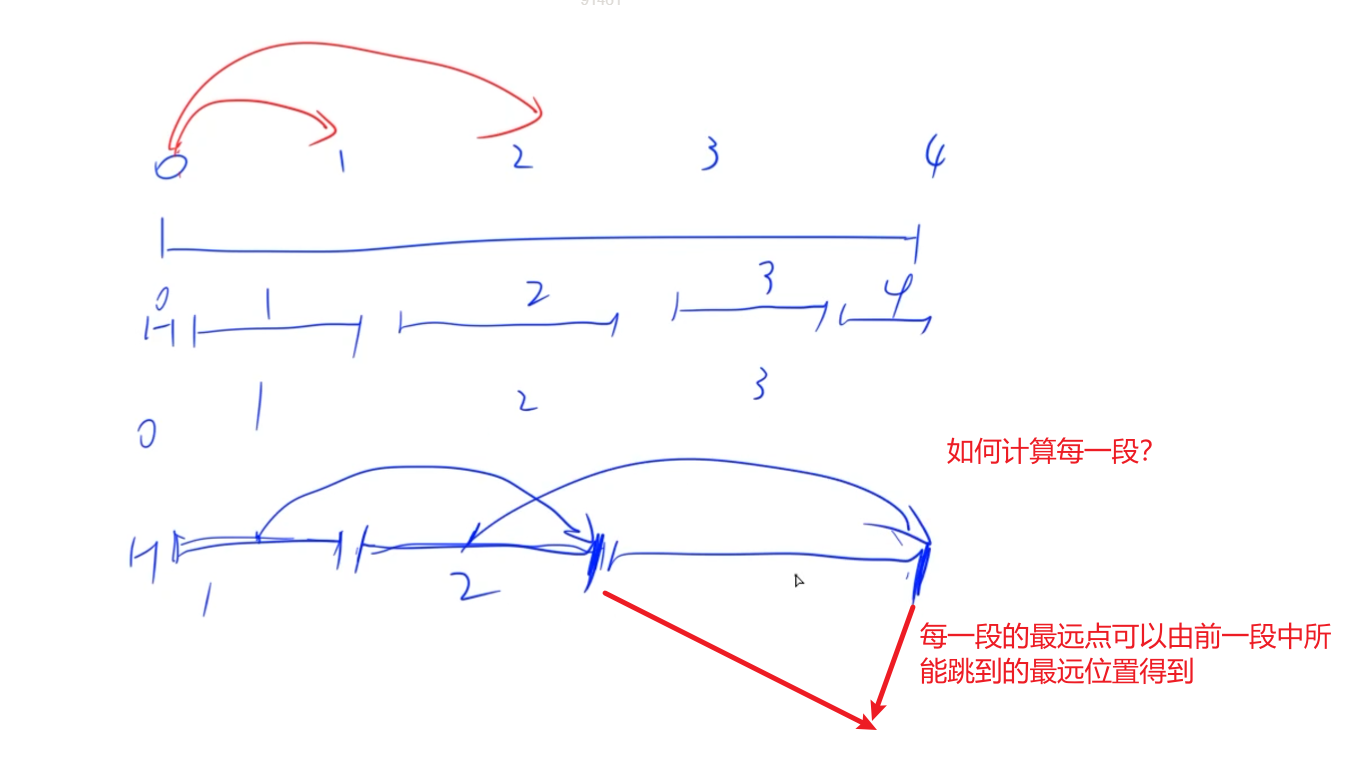 0 1 2 3 4
0 1 2 3 4
0 1 2 3
如何计算每一段？
1 2
每一段的最远点可以由前一段中所
能跳到的最远位置得到